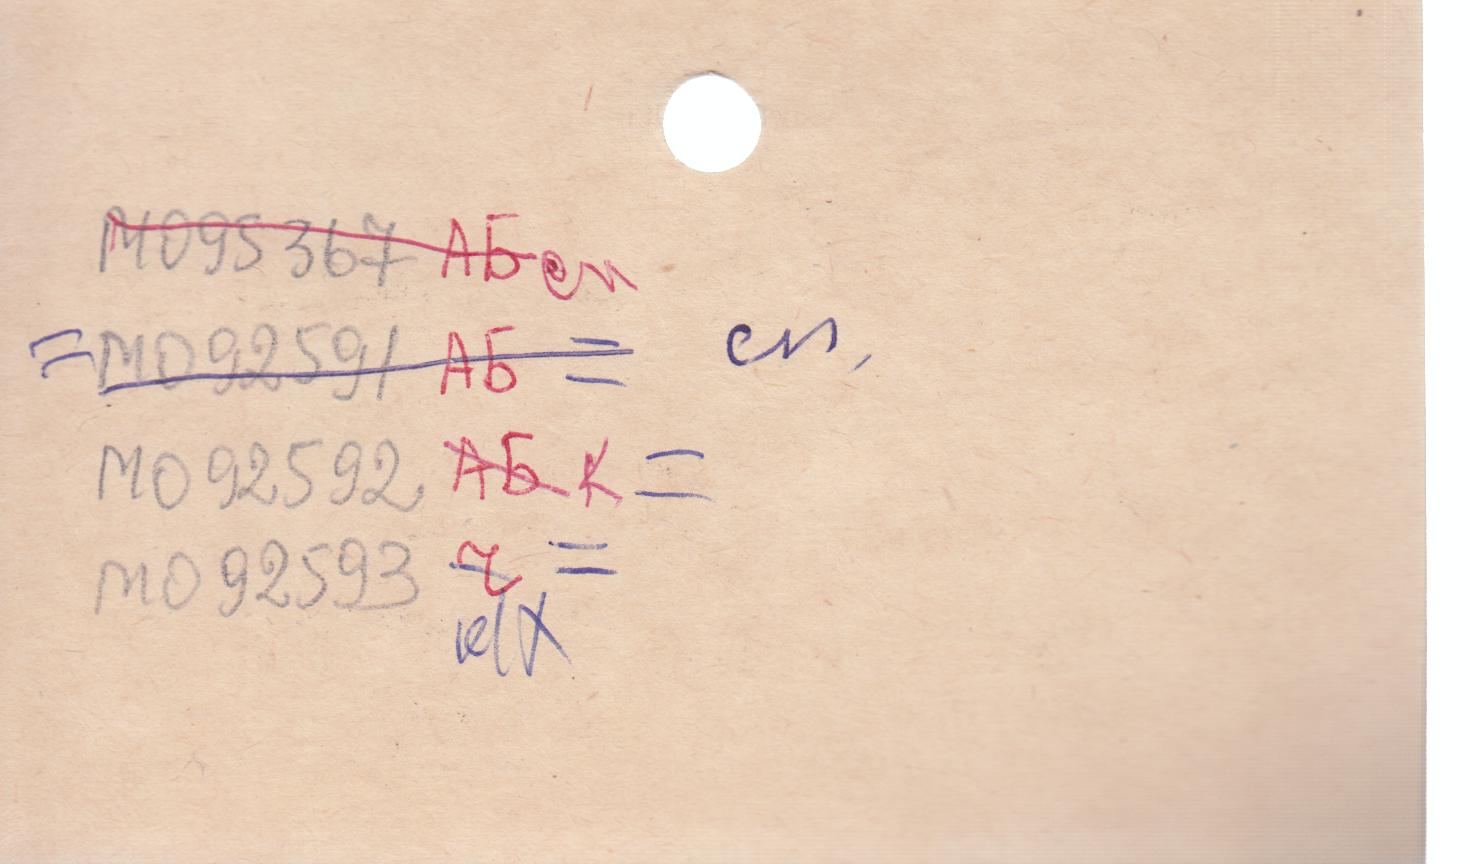 М095367 АБ сп
= М092591 АБ = сп,
М092592 АБ К =
М092593 ч =